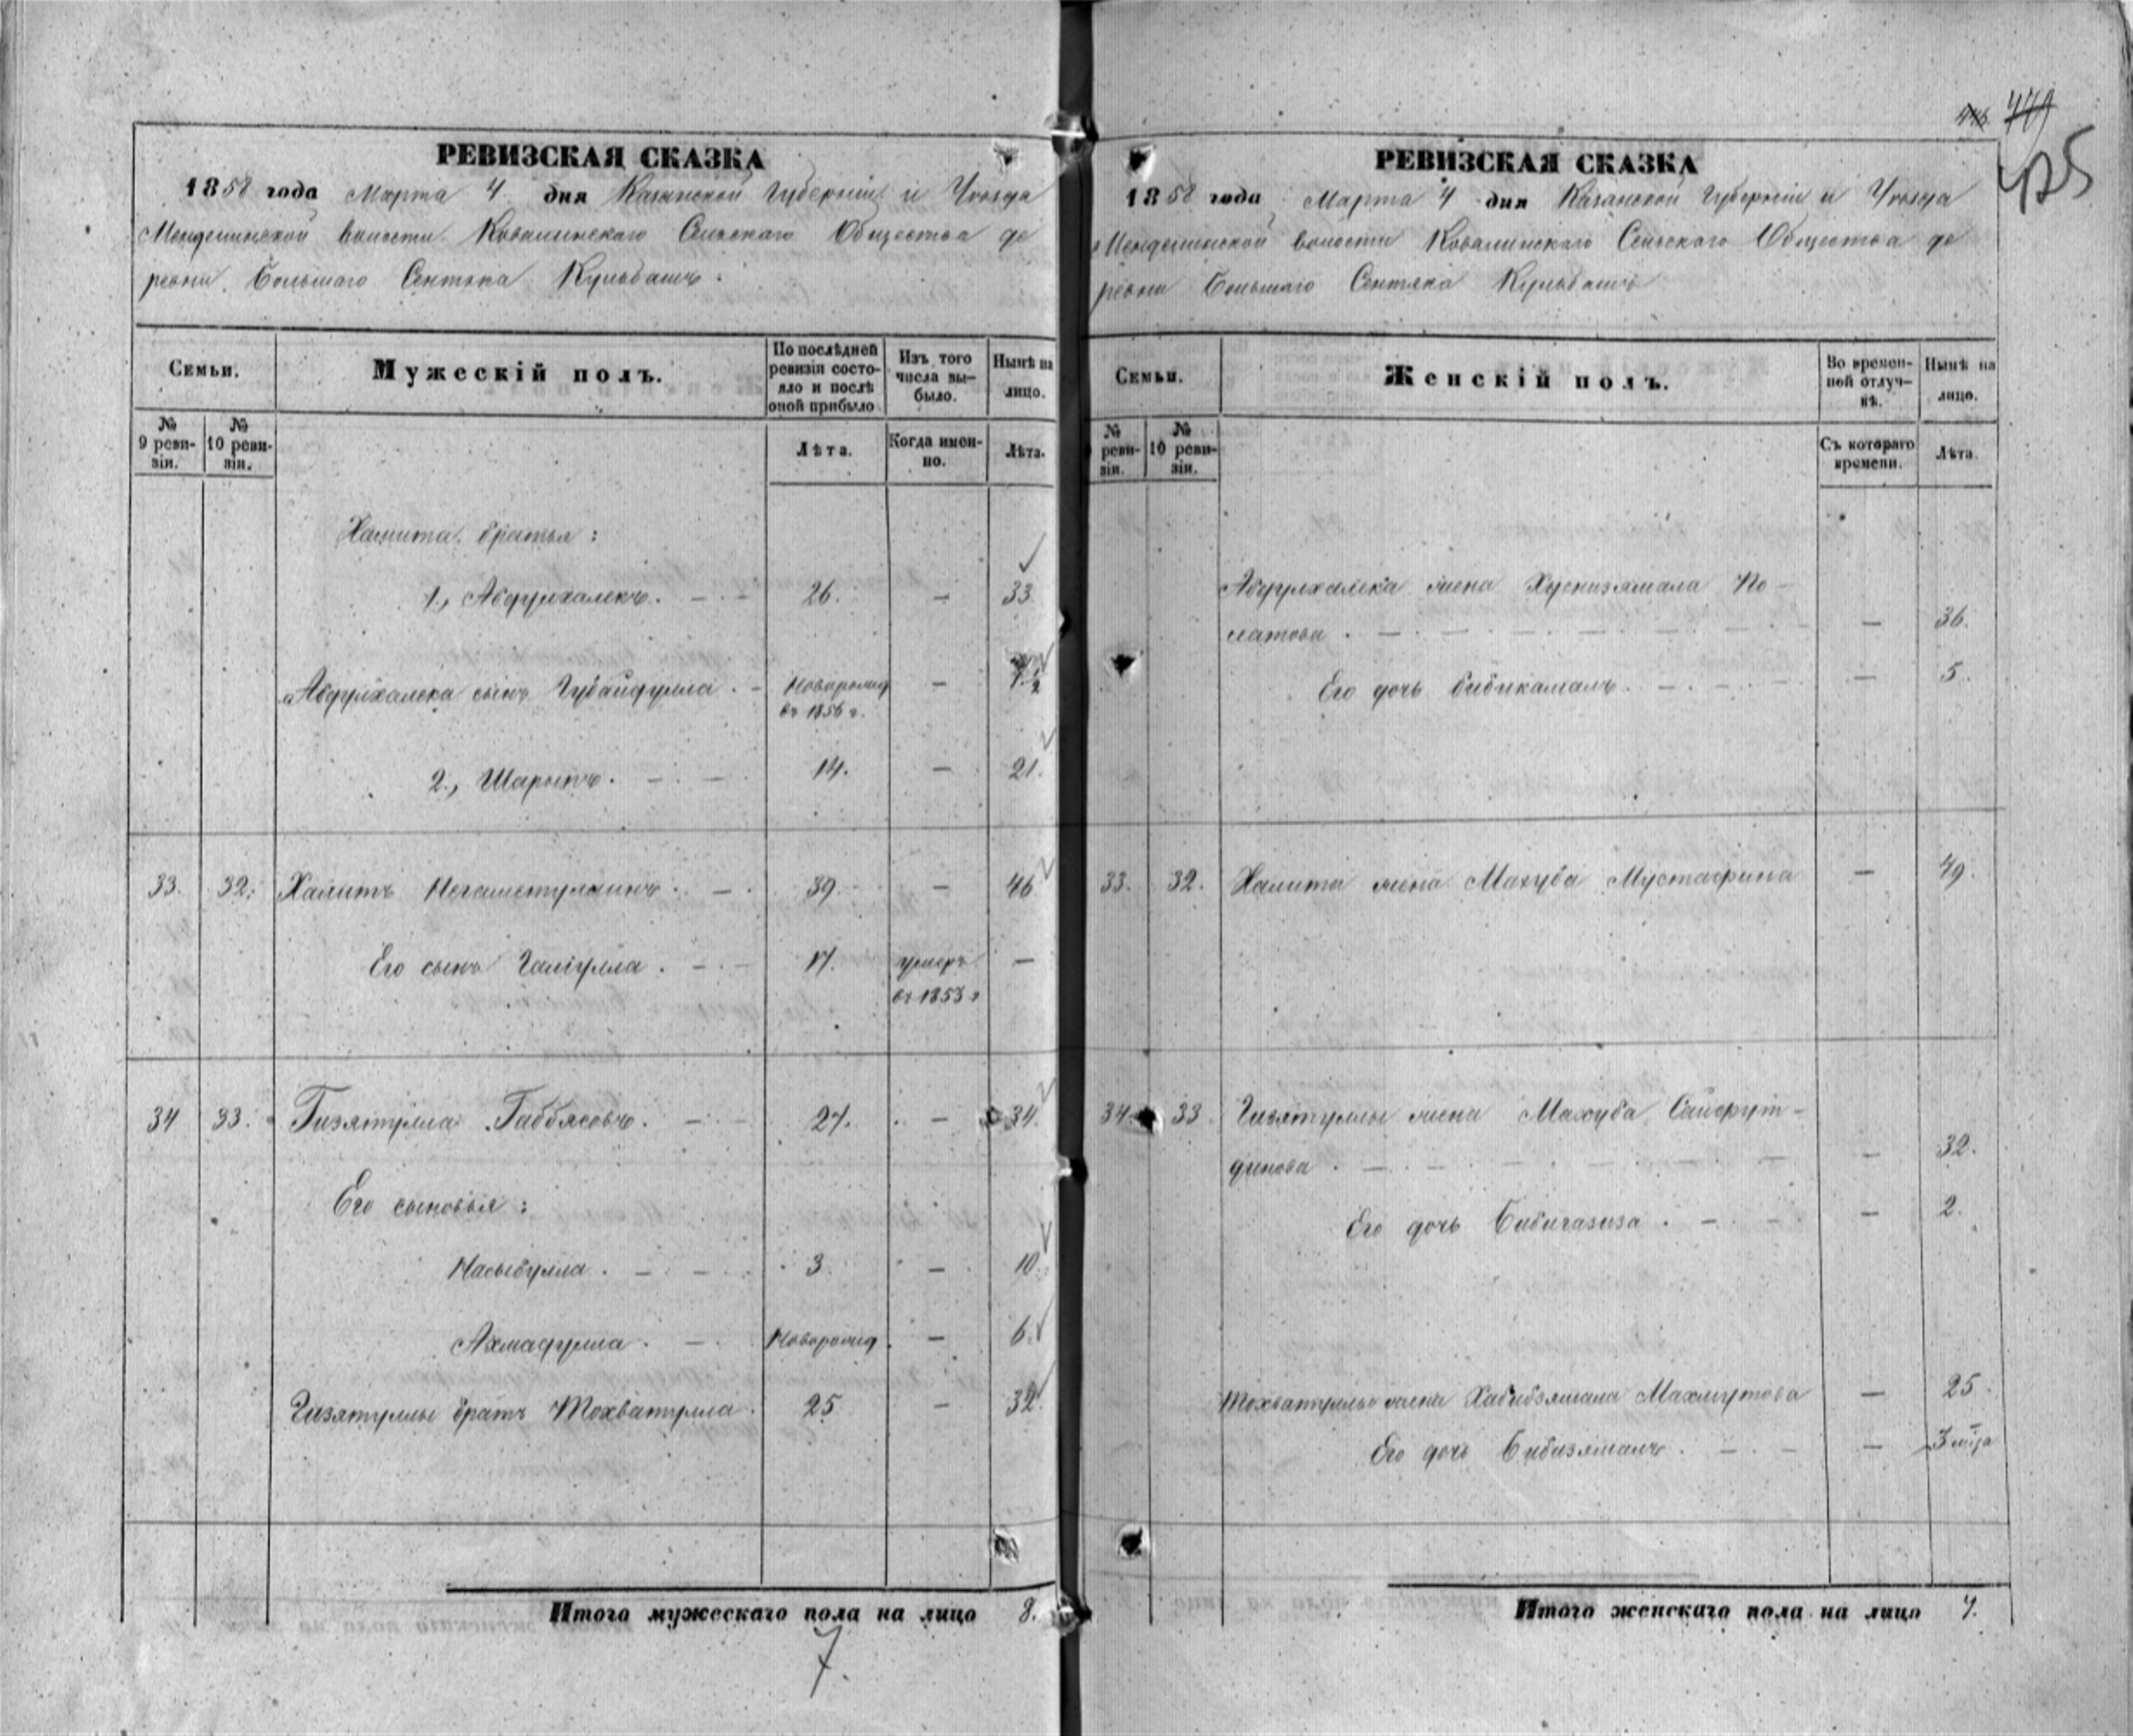 446. 479
475
РЕВИЗСКАЯ СКАЗКА
1858 года Марта 4 дня Казанской Губерніи и Уѣзда
Менделинской волости Ковалинскаго Сельскаго Общества де
ревни Большаго Сентяка Кульбашъ:
Семьи.
Мужескій полъ.
По послѣдней ревизіи состо-
яло и послѣ
оной прибыло
Изъ того
числа вы-
было.
Нынѣ на
лицо.
№
9 реви-
зіи.
№
10 реви-
зіи.
Лѣта.
Когда имен-
но.
Лѣта.
Хамита братья:
1., Абдулхалекъ. 26. — 33
Абдулхалека сынъ Губайдулла. Новорожд — 1 1/2
въ 1856 г.
2., Шарыпъ. 14. — 21.
33. 32. Халитъ Негаметуллинъ. 39. — 46
Его сынъ Галіулла. 17. умеръ —
въ 1853 г
34 33. Гизятулла Габбясовъ. 27. — 34.
Его сыновья:
Насыбулла. 3. — 10.
Ахмадулла. Новорожд. — 6.
Гизятуллы братъ Мохватулла. 25 — 32.
Итого мужескаго пола на лицо 8.
7.
РЕВИЗСКАЯ СКАЗКА
1858 года Марта 4 дня Казанской Губерніи и Уѣзда
Менделинской волости Ковалинскаго Сельскаго Общества де
ревни Большаго Сентяка Кульбашъ
Семьи.
Женскій полъ.
Во времен-
ной отлуч-
кѣ.
Нынѣ на
лицо.
№
реви-
зіи.
№
10 реви-
зіи.
Съ котораго
времени.
Лѣта.
Абдулхалека жена Хуснизямала
— 36.
Его дочь Бибикамалъ. — 5.
33. 32. Халита жена Махуба Мустафина — 49.
34. 33 Гизятуллы жена Махуба Сайфут-
динова. — 32.
Его дочь Бибигазиза. — 2.
Мохватуллы жена Хабибзямала Махмутова — 25.
Его дочь Бибизямалъ. — 3 м-ца
Итого женскаго пола на лицо 7.